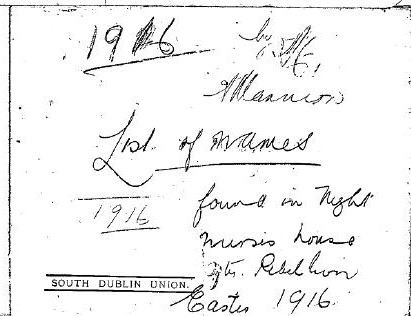 1916
by
List of names
1916
found in Night
nurses house
Rebellion
SOUTH DUBLIN UNION.
Easter 1916